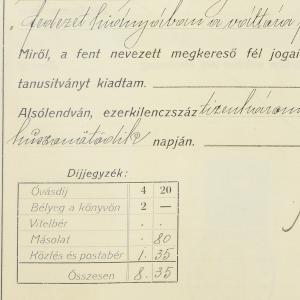 fedezet hiányában a váltóra
Miről, a fent nevezett megkereső fél jogai
tanusítványt kiadtam.
Alsólendván, ezerkilenczszáz tizenhárom
huszonötödik napján.
Díjjegyzék:
Óvásdíj 4 20
Bélyeg a könyvön 2 —
Vitelbér . .
Másolat . 80
Közlés és postabér 1. 35
Összesen 8. 35